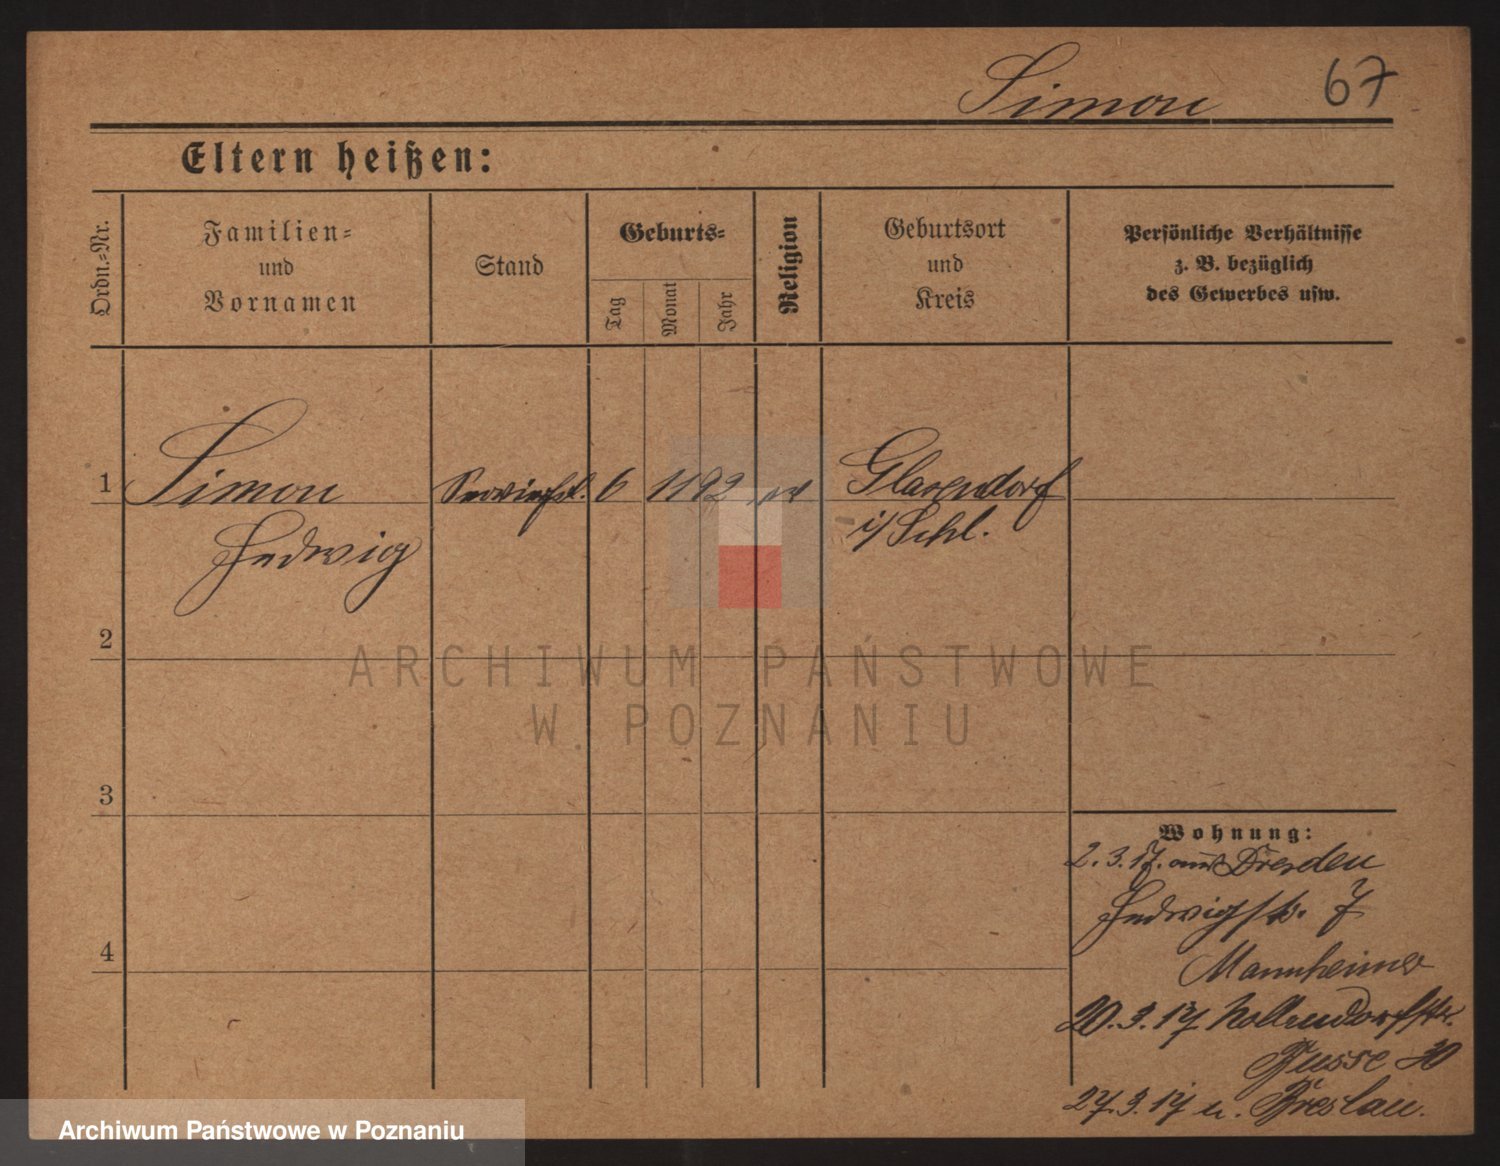 Simon 67
Eltern heißen:
Ordn.-Nr.
Familien-
und
Vornamen
Stand
Geburts-
Tag
Monat
Jahr
Religion
Geburtsort
und
Kreis
Persönliche Verhältnisse
z. B. bezüglich
des Gewerbes usw.
1 Simon 6 11 92
Hedwig i/Schl.
2
3
4
ARCHIWUM PAŃSTWOWE
W POZNANIU
Wohnung:
2.3.17. aus Dresden
Hedwigstr. 7
Mannheimer
20.3.17 Nollendorfstr.
Busse 20
27.3.17 n. Breslau.
Archiwum Państwowe w Poznaniu